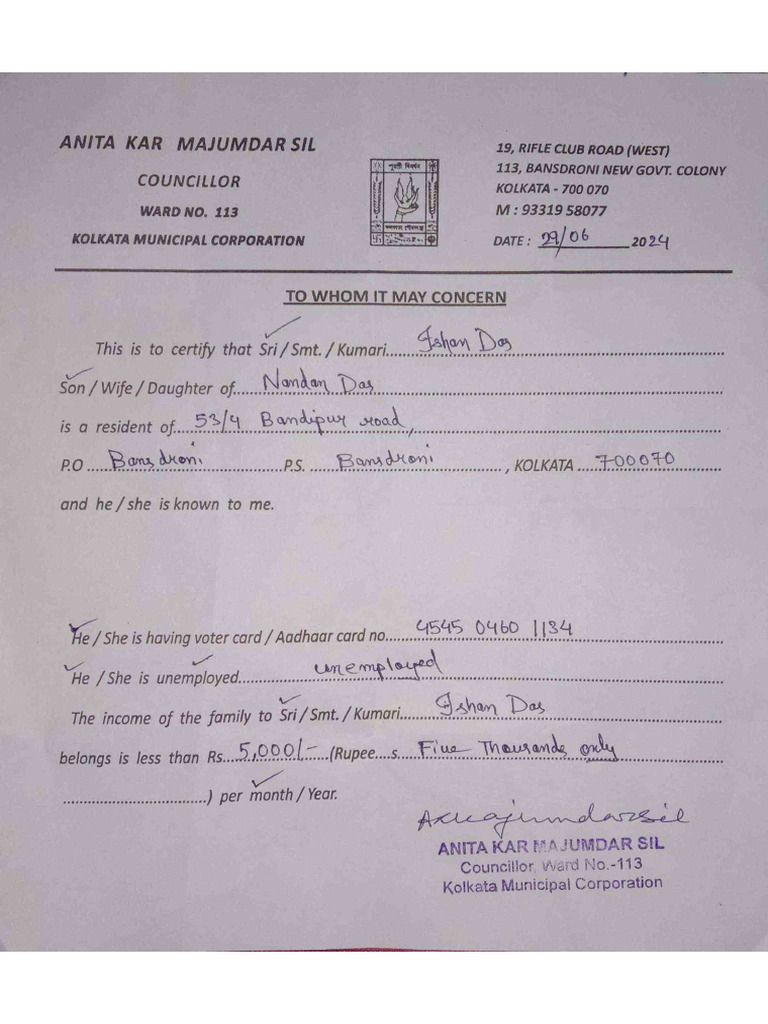 ANITA KAR MAJUMDAR SIL
COUNCILLOR
WARD NO. 113
KOLKATA MUNICIPAL CORPORATION
19, RIFLE CLUB ROAD (WEST)
113, BANSDRONI NEW GOVT. COLONY
KOLKATA - 700 070
M : 93319 58077
DATE : 29/06 2024
TO WHOM IT MAY CONCERN
This is to certify that Sri / Smt. / Kumari Ishan Das
Son / Wife / Daughter of Nandan Das
is a resident of 53/4 Bandipur road,
P.O Bansdroni P.S. Bansdroni, KOLKATA 700070
and he / she is known to me.
He / She is having voter card / Aadhaar card no. 4545 0460 1134
He / She is unemployed unemployed
The income of the family to Sri / Smt. / Kumari Ishan Das
belongs is less than Rs. 5,000/- (Rupee s Five Thousands only
) per month / Year.
AKMajumdarsil
ANITA KAR MAJUMDAR SIL
Councillor, Ward No.-113
Kolkata Municipal Corporation